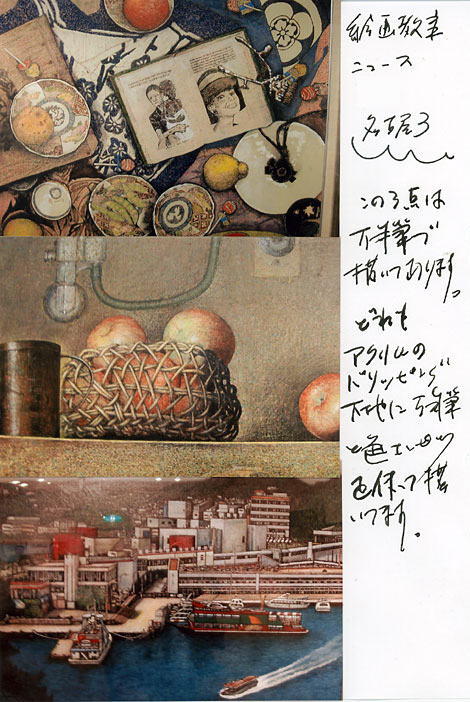 絵画教室
ニュース
名古屋3
この3点は
万年筆で
描いてあります。
どれも
アクリルの
ドリッピング
下地に万年筆
と色エンピツ
を使って描
いてます。